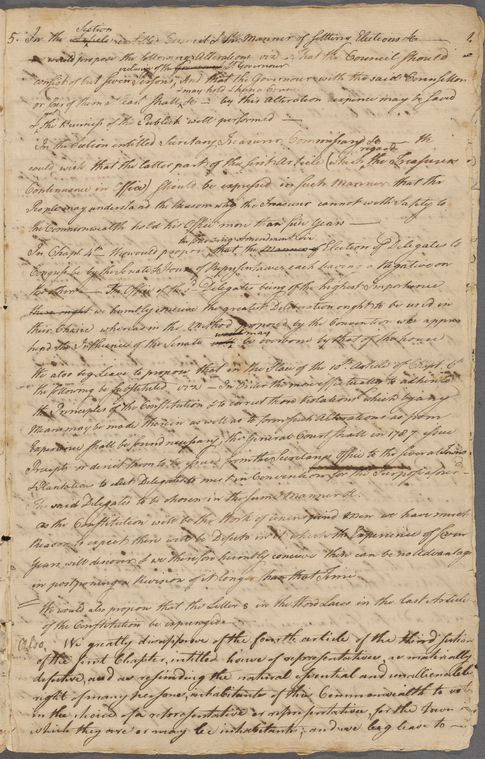 5. In the Section and the Council & the Manner of settling Elections &c
we would propose the following Alterations viz. — That the Council should
consist of but seven Persons, And that the Governour with the said Counsellors
or five of them at least shall &c — by this Alteration expence may be saved
& the Business of the Publick well performed —
In the Section entitled Secretary, Treasurer, Commissary &c — We
could wish that the latter part of the first Article (which regards the Treasurers
Continuance in Office) should be expressed in such Manner that the
People may understand the Reason why the Treasurer cannot with Safety to
the Commonwealth hold his Office more than five Years —
In Chapt. 4th We would propose the following Amendment viz. that the Election of Delegates to
Congress be by the Senate & House of Representatives each having a Negative on
the other — The Office of the sd Delegates being of the highest Importance
we humbly conceive the greatest Deliberation ought to be used in
their Choice whereas in the Method proposed by the Convention we appre-
hend the Influence of the Senate may be overborne by that of the House
We also beg leave to propose that in the Place of the 10th Article of Chapt. 6
the following be substituted viz. — In Order the more effectually to adhere to
the Principles of the Constitution & to correct those Violations which by any
Means may be made therein as well as to form such Alterations as from
Experience shall be found necessary the General Court shall in 1787 issue
Precepts or direct them to be issued from the Secretarys Office to the several Towns
& Plantations to elect Delegates to meet in Convention for the Purposes aforesd
The said Delegates to be chosen in the same Manner &c.
As the Constitution will be the Work of uninspired Men we have much
Reason to expect there will be Defects in it which the Experience of Seven
Years will discover & we therefore humbly conceive there can be no Advantage
in postponing a Revision of it longer than that Time
We would also propose that the Letter s in the Word Laws in the last Article
of the Constitution be expunged
Also, We greatly disapprove of the fourth article of the third section
of the first Chapter, intitled house of representatives, as materially
defective, and as rescinding the natural essential and unalienable
right of many persons, inhabitants of this Commonwealth to vote
in the choice of a representative or representatives, for the Town in
which they are or may be inhabitants; and we beg leave to —